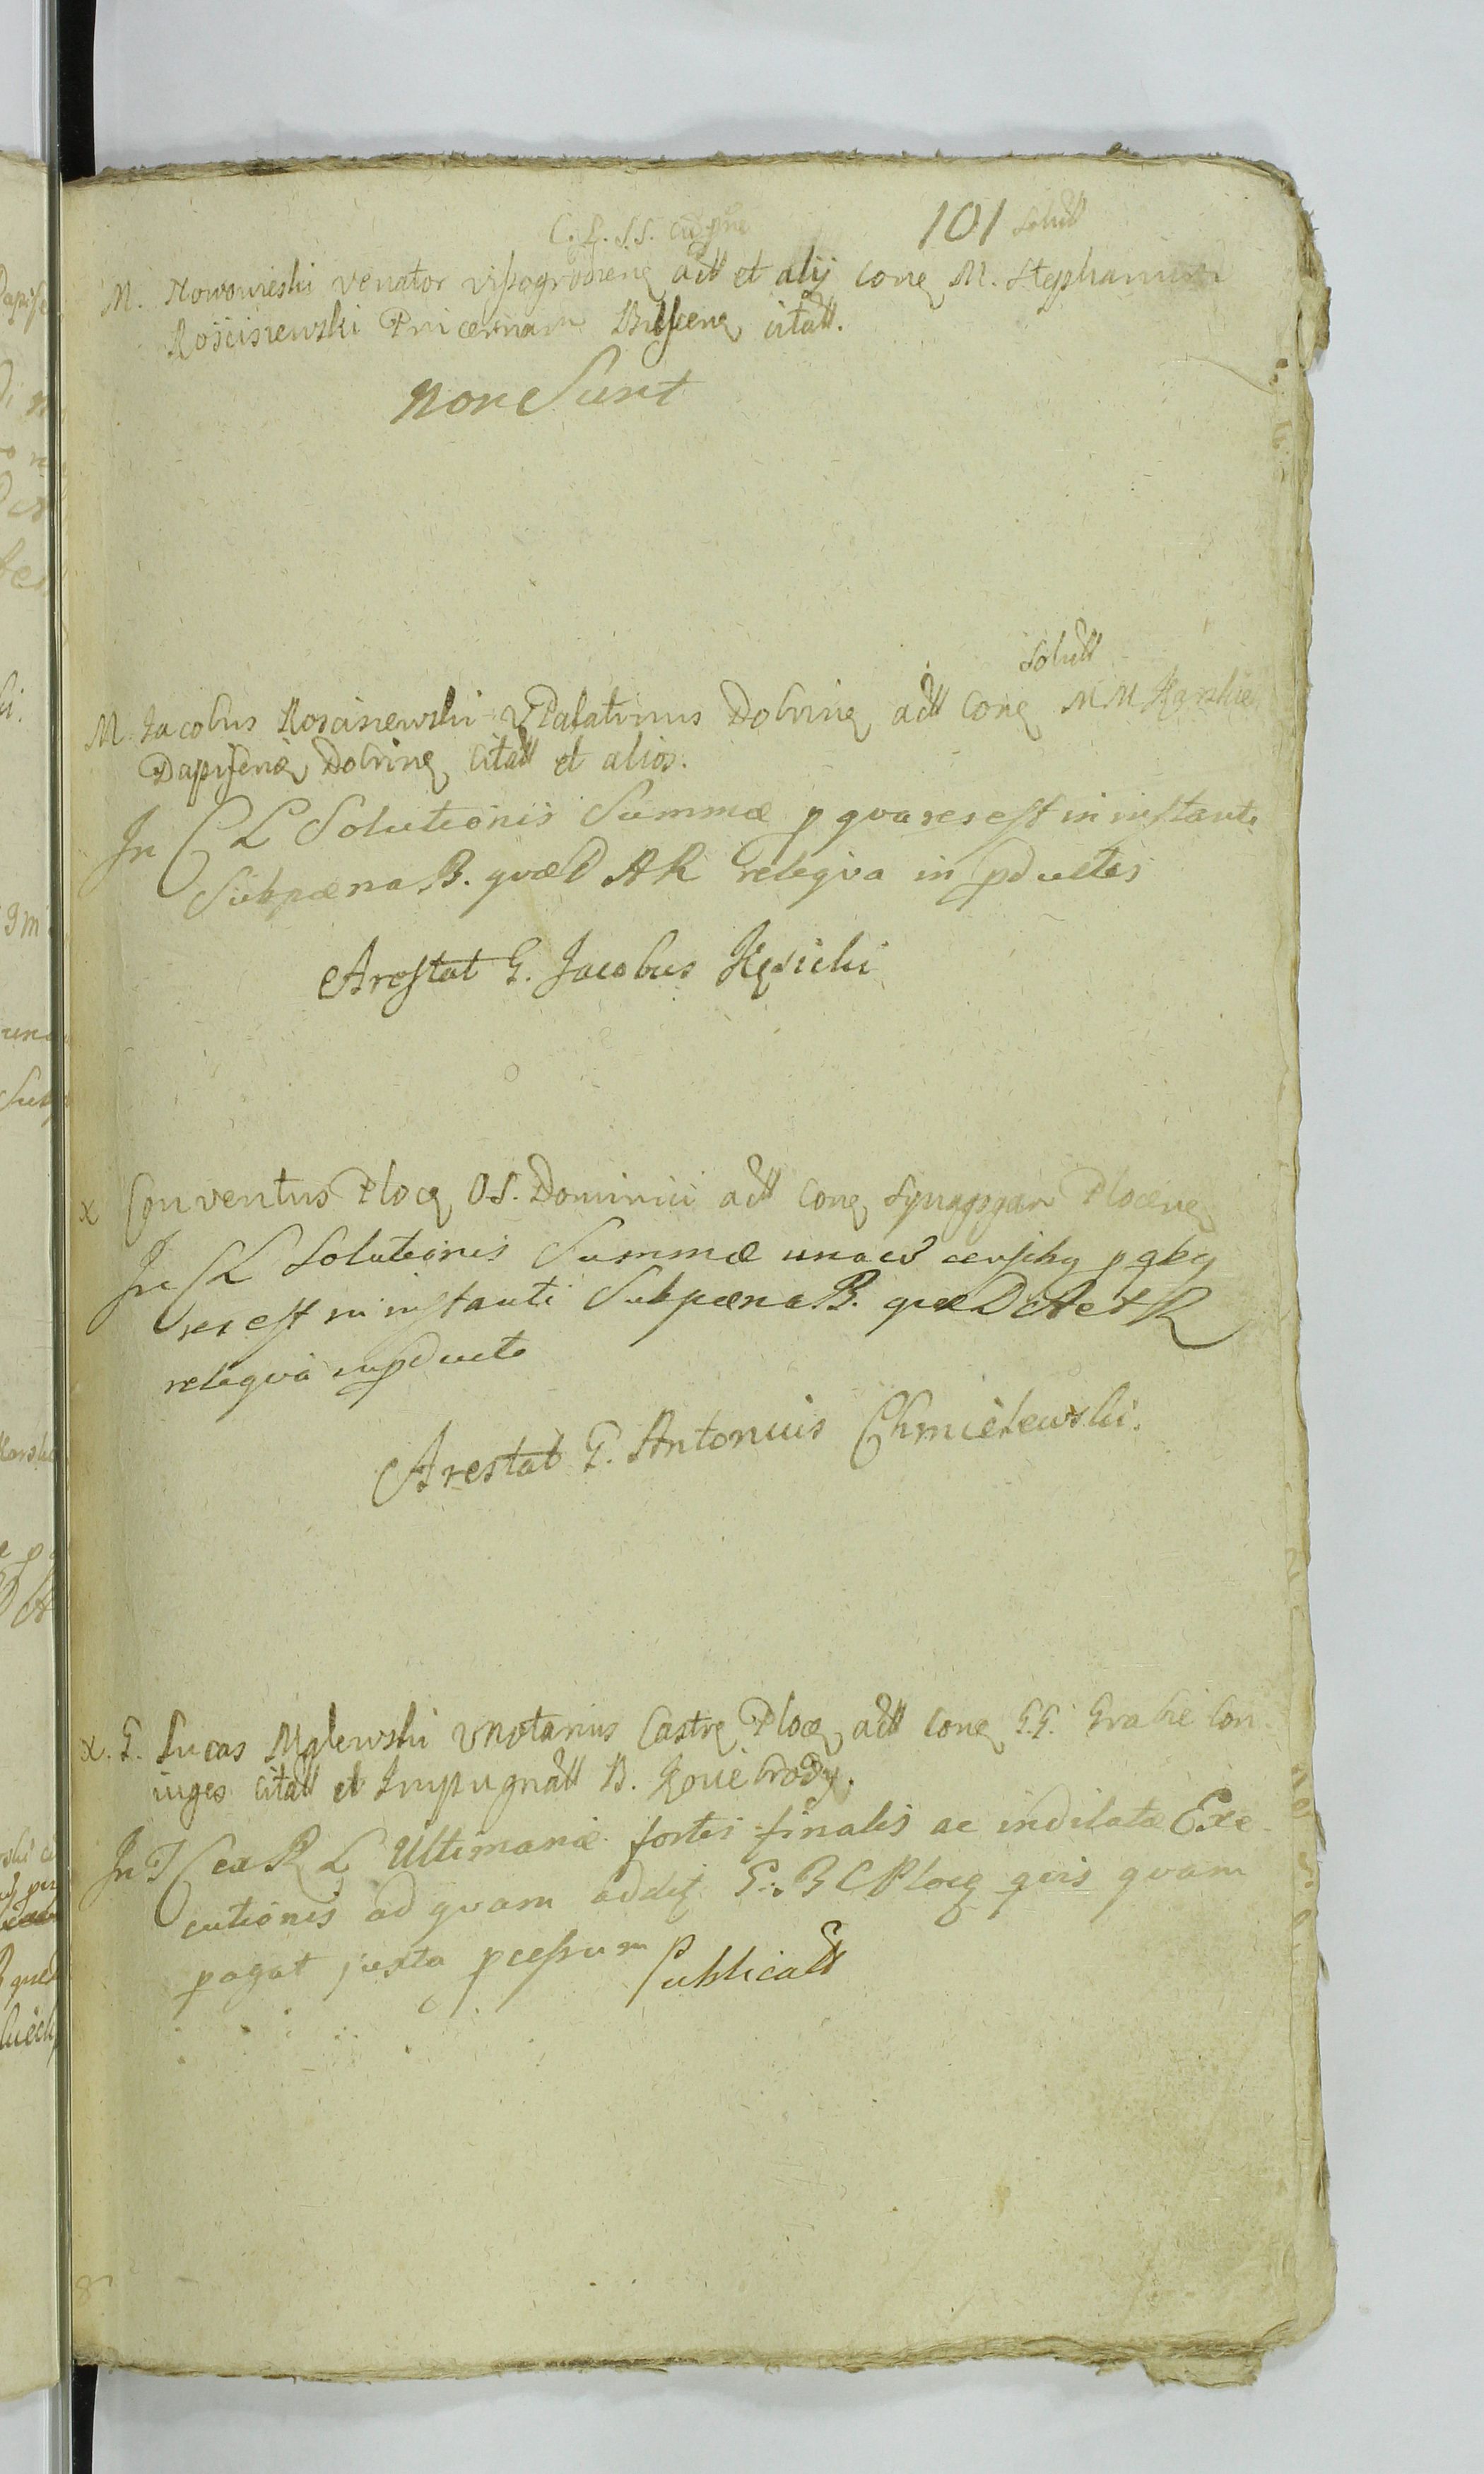 101 Solutt
C. L. SS.
M. Nowowieski venator visogrodieng actt et alij cong M. Stephanum
Rosciszewski Pincernam citatt.
non Sunt
Solutt
M. Jacobus Rosciszewski VPalatinus Dobring actt Cong MM Karskie
Dapiferiæ Dobring Citatt et alios.
In C L Solutionis Summæ p qva res est in instanti
Subpæna B. qvæ D A R reliqva in pductis
Arestat G. Jacobus Kęsicki
x Conventus Plocg OS. Dominici actt cong Synagogam Ploceng
In C L Solutionis Summæ una cũ censibg p qbg
res est in instanti Subpæna B. quæ D A et R
reliqva in pducto
Arestat G. Antonius Chmielewski.
x. G. Lucas Malewski VNotarius Castrg Plocg actt cong GG. Grabie Con
iuges Citatt et Impugnatt B.
In T C ex R L Ultimariæ fortis finalis ac indilatæ Exe-
cutionis ad qvam addit G. B C Plocg qvis qvam
pagat juxta pcessum Publicatt